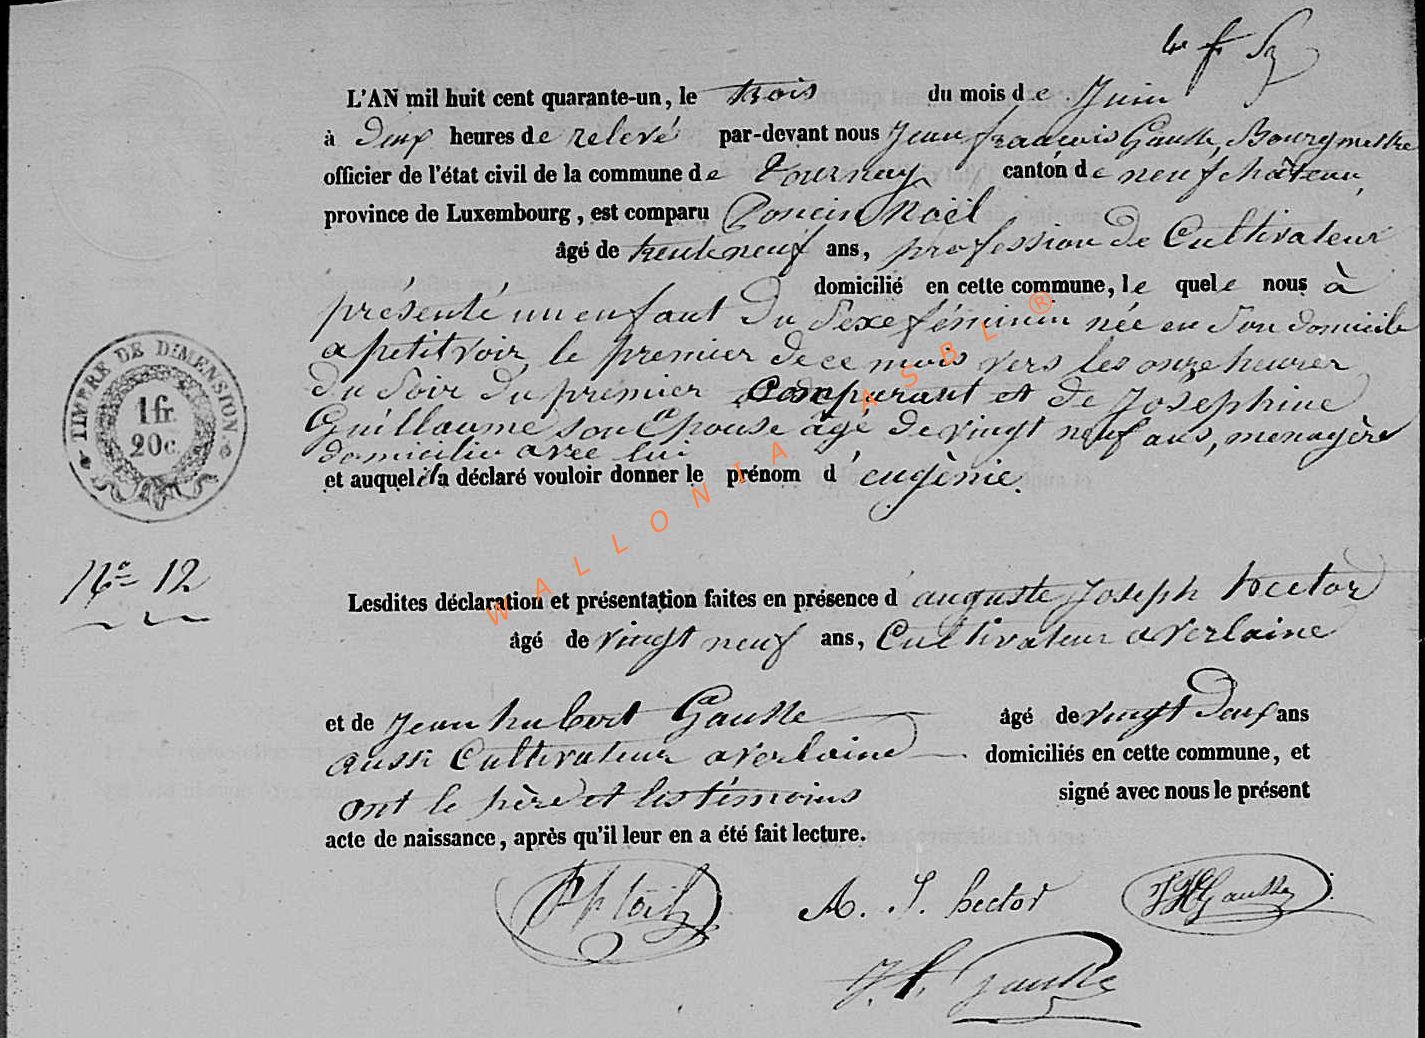 L'AN mil huit cent quarante-un, le trois du mois de Juin
à deux heures de relevé par-devant nous Jean françois Gausse, Bourgmestre
officier de l'état civil de la commune de tournay canton de neufchâteau,
province de Luxembourg, est comparu Poncin Noël
âgé de trente neuf ans, profession de Cultivateur
domicilié en cette commune, le quel e nous à
présenté un enfant du Sexe féminin née en Son domicile
a petitvoir le premier de ce mois vers les onze heures
du Soir du premier Comparant et de Josephine
Guillaume son Epouse âgé de vingt neuf ans, menagère
domicilié avec lui
et auquel il a déclaré vouloir donner le prénom d'eugènie.
TIMBRE DE DIMENSION
1 fr.
20 c.
No 12
Lesdites déclaration et présentation faites en présence d'auguste Joseph hector
âgé de vingt neuf ans, Cultivateur a verlaine
et de Jean hubert Gausse âgé de vingt deux ans
aussi Cultivateur a verlaine domiciliés en cette commune, et
ont le père et les témoins signé avec nous le présent
acte de naissance, après qu'il leur en a été fait lecture.
A. J. hector
JH Gausse
J. f. Gausse
WALLONIA ASBL ®